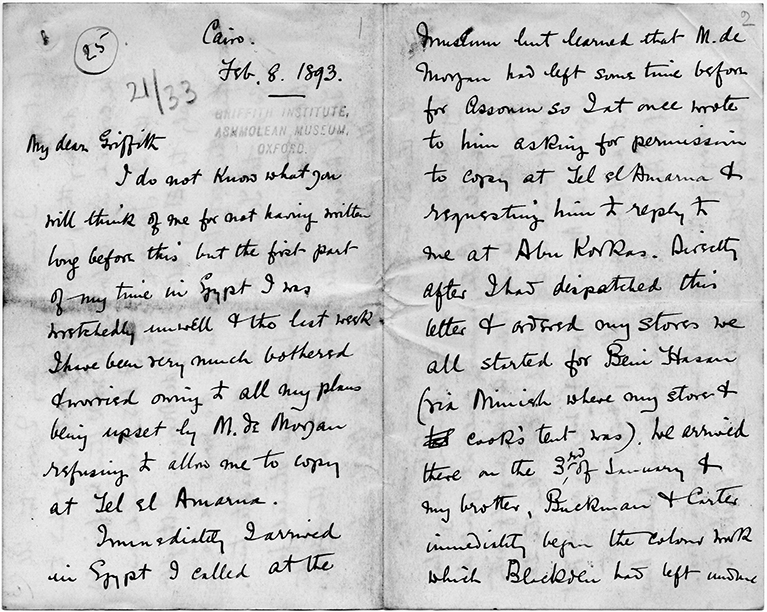 25
1
Cairo.
Feb. 8. 1893.
21/33
GRIFFITH INSTITUTE,
ASHMOLEAN MUSEUM,
OXFORD.
My dear Griffith
I do not know what you
will think of me for not having written
long before this but the first part
of my time in Egypt I was
wretchedly unwell & the last week
I have been very much bothered
& worried owing to all my plans
being upset by M. de Morgan
refusing to allow me to copy
at Tel el Amarna.
Immediatly I arrived
in Egypt I called at the
2
Museum but learned that M. de
Morgan had left some time before
for Assouan so I at once wrote
to him asking for permission
to copy at Tel el Amarna &
requesting him to reply to
me at Abu Korkas. Directly
after I had dispatched this
letter & ordered my stores we
all started for Beni Hasan
(via Minieh where my stores &
cook's tent was). We arrived
there on the 3rd of January &
my brother, Buckman & Carter
immediatly began the colour work
which Blackden had left undone